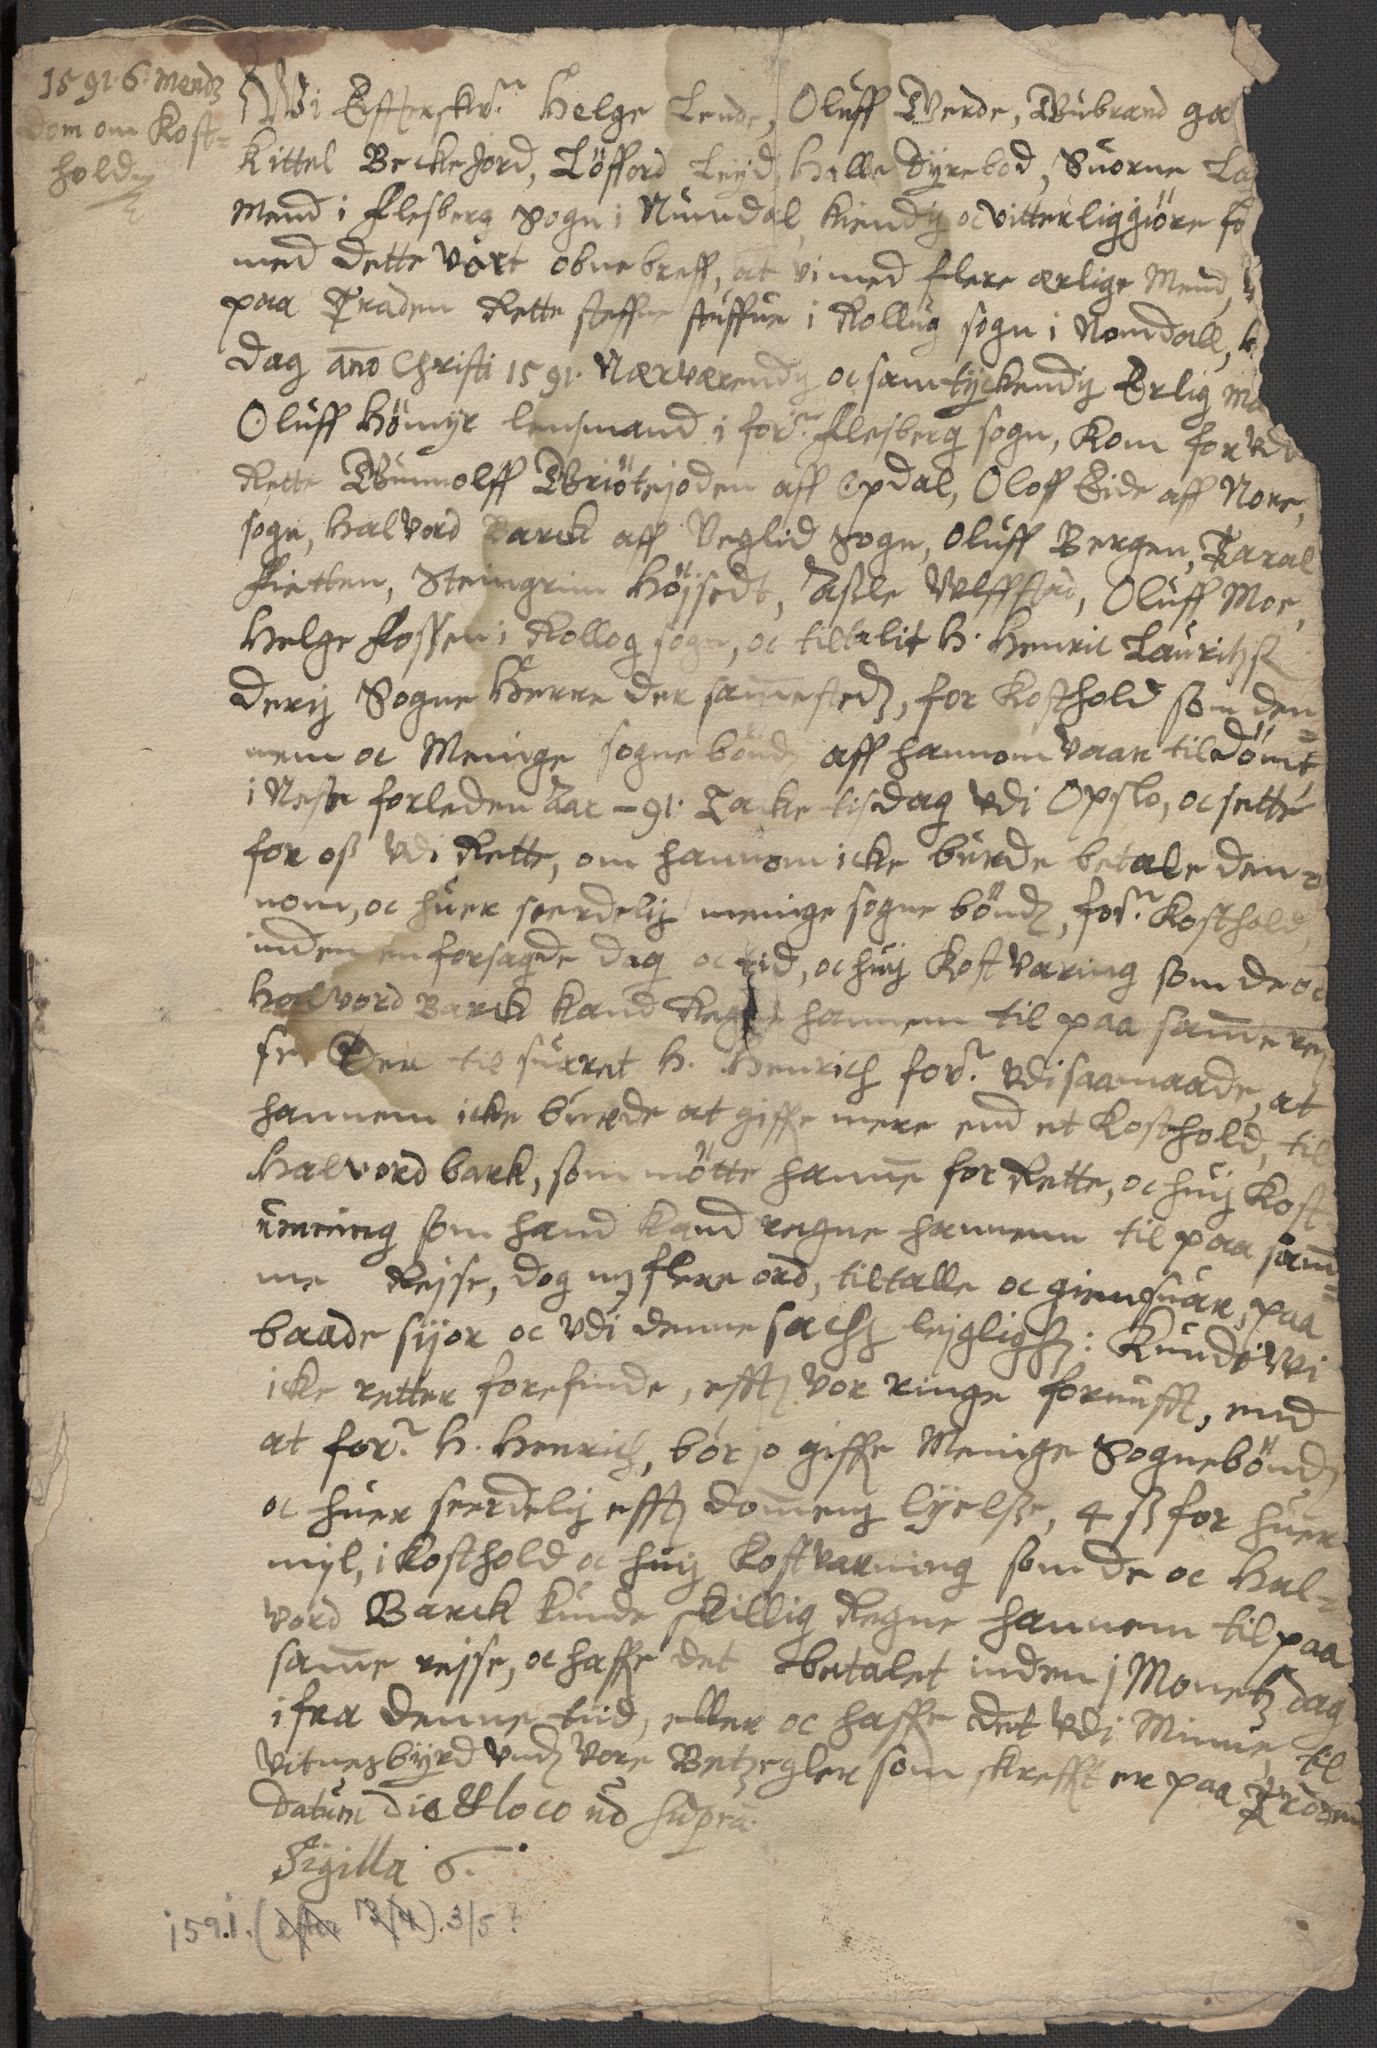 1591. 6 Mendz
dom om Kost-
hold
Wi Efftersk:ne Helge Lende, Oluff Werde, Wubrand ga
Kittel Beckejord, Löfford Leyd, Halle Dyrebod, Suorne La
Mend i Flesberg Sogn i Numdal, kiendis oc vitterliggiöre fo
med dette vort obne breff, at vi med flere ærlige Mend,
paa Traden Rette steffne stuffue i Rollug sogn i Nomdall,
dag ano Christi 1591. Nærværendis oc samtyckendis Erlig Ma
Oluff Hömyr lensmand i for:ne Flesberg sogn, Kom for vdi
Rette Wunnolff Briötejoden aff Opdal, Oloff Eide aff Nore,
sogn, Halvord Barck aff Veglid Sogn, Oluff Bergen, Taral
Fietten, Steingrim Höjsedt, Aslle Vlffsted, Oluff Moe,
Helge Fossen i Rollog sogn, oc tiltalit H. Henric Lauritzß
deris Sogne Herre der samestedz, for Kosthold som den-
nem oc Meninge sogne bönd aff hannom vaar tildömt
i Neste forleden Aar - 91. Tacke tisdag vdi Opslo, oc sette
for oß vdi Rette, om hannom icke burde betale den-
nom, oc huer særdelis meninge sogne bönd, for:ne Kosthold
inden en forsagde dag oc tid, oc huis Kost varing som de oc
Halvord Barck kand Regne hannem til paa same rej
se. Der til suaret H. Henrich for:ne vdi saa maade, at
hannem icke burde at giffe mere end et Kosthold, til
Halvord bark, som mötte hanne for Rette, oc huis Kost
varing som hand kand regne hannem til paa sam-
me Rejse, dog m; flere ord, tiltalle oc giensuar, paa
baade sijor oc vdi denne sachs lejglighz: Kunde Wi
icke retter forefinde, efft vor ringe fornufft, end
at for:ne H. Henrich, bör jo giffe Meninge Sognebönd
oc huer serdelis efft domens lyelße, 4 ß for huer
mijl, i Kosthold oc huis Kostvarning som de oc Hal-
vord Barck kunde skillig Regne hannem til paa
same rejse, oc haffe det betalet inden j Monetz dag
ifra denne tiid, eller oc haffe det vdi Minne, til
vitnesbyrd vnd vore Betzegler som skrefft er paa Traden
Datum die & loco ud supra.
Sigilla 6.
1591. (efter 12/4). 3/5?